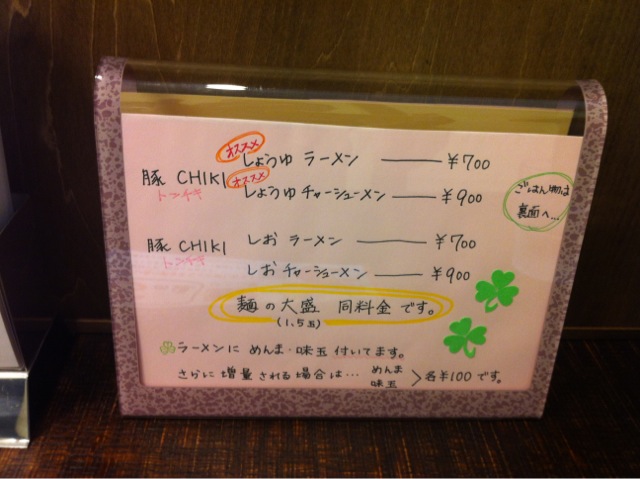 オススメ
しょうゆ ラーメン ――― ¥700
豚 CHIKI
トンチキ
オススメ
しょうゆ チャーシューメン ――― ¥900
ごはん物は
裏面へ...
豚 CHIKI
トンチキ
しお ラーメン ――― ¥700
しお チャーシューメン ――― ¥900
麺の大盛 同料金です。
(1.5玉)
ラーメンに めんま・味玉 付いてます。
さらに増量される場合は… めんま 味玉 > 各¥100です。